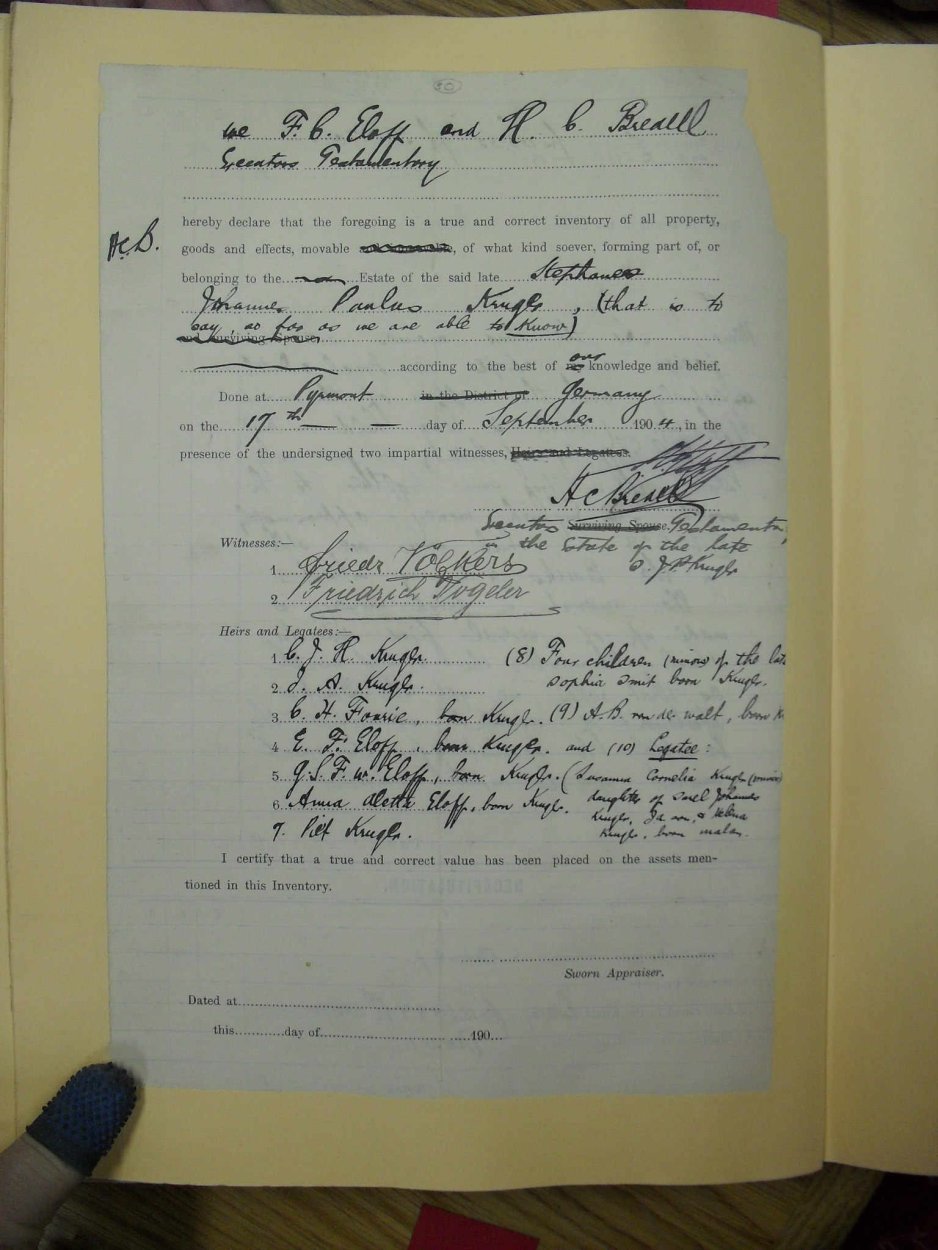 30
we F. C. Eloff and H. C. Bredell
Executors Testamentory
hereby declare that the foregoing is a true and correct inventory of all property,
H.C.B.
goods and effects, movable, of what kind soever, forming part of, or
belonging to the Estate of the said late Stephanes
Johannes Paulus Kruger, (that is to
say, so far as we are able to know)
and Surviving Spouse
according to the best of our knowledge and belief.
Done at Pyrmont in the District of Germany
on the 17th day of September 1904, in the
presence of the undersigned two impartial witnesses, Heirs and Legatees.
H C Bredell
Executors Surviving Spouse. Testamentary
Witnesses:— in the Estate of the late
1. Friedr Völkers S. J. P. Kruger
2. Friedrich Vogeler
Heirs and Legatees:—
1. C. J. H. Kruger. (8) Four children (minors) of the late
2. J. A. Kruger. Sophia Smit born Kruger.
3. C. H. Fourie, born Kruger. (9) A. B. van der Walt, born
4. E. F. Eloff, born Kruger. and (10) Legatee:
5. G. S. F. W. Eloff, born Kruger. (Susanna Cornelia Kruger (minor)
6. Anna Aletta Eloff, born Kruger. daughter of Sarel Johannes
Kruger, & Helena
7. Piet Kruger. Kruger, born Malan.
I certify that a true and correct value has been placed on the assets men-
tioned in this Inventory.
Sworn Appraiser.
Dated at
this day of 190